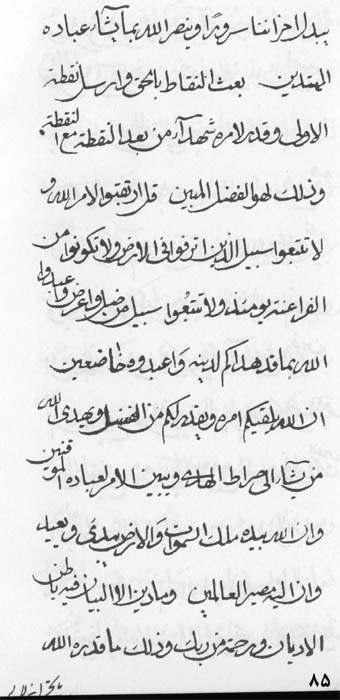 يبدل احزاننا سرورا و ينصر الله بما يشاء عباده
المهتدين بعث النقاط بالحق و ارسل نقطة
الاولى و قدر لامره شهداء من بعد النقطة مع النقطة
و ذلك لهو الفضل المبين قل ارتقبوا لامر الله و
لا تتبعوا سبيل الذين اترفوا فى الارض و لا تكونوا من
الفراعنة يومئذ و لا تتبعوا سبيل من ضل و اغرض و اعبدوا
الله بما قد هداكم لدينه و اعبدوه خاضعين
ان الله يلقيكم امره و يقدر لكم من الفضل و يهدى الله
من يشاء الى صراط الهدى و يبين الامر لعباده الموقنين
و ان الله بيده ملك السموات و الارض يبدئ و يعيد
و ان اليه مصير العالمين و ما دين الا البيان فيه باطن
الاديان و رحمة من ربك و ذلك ما قدره الله
٨٥